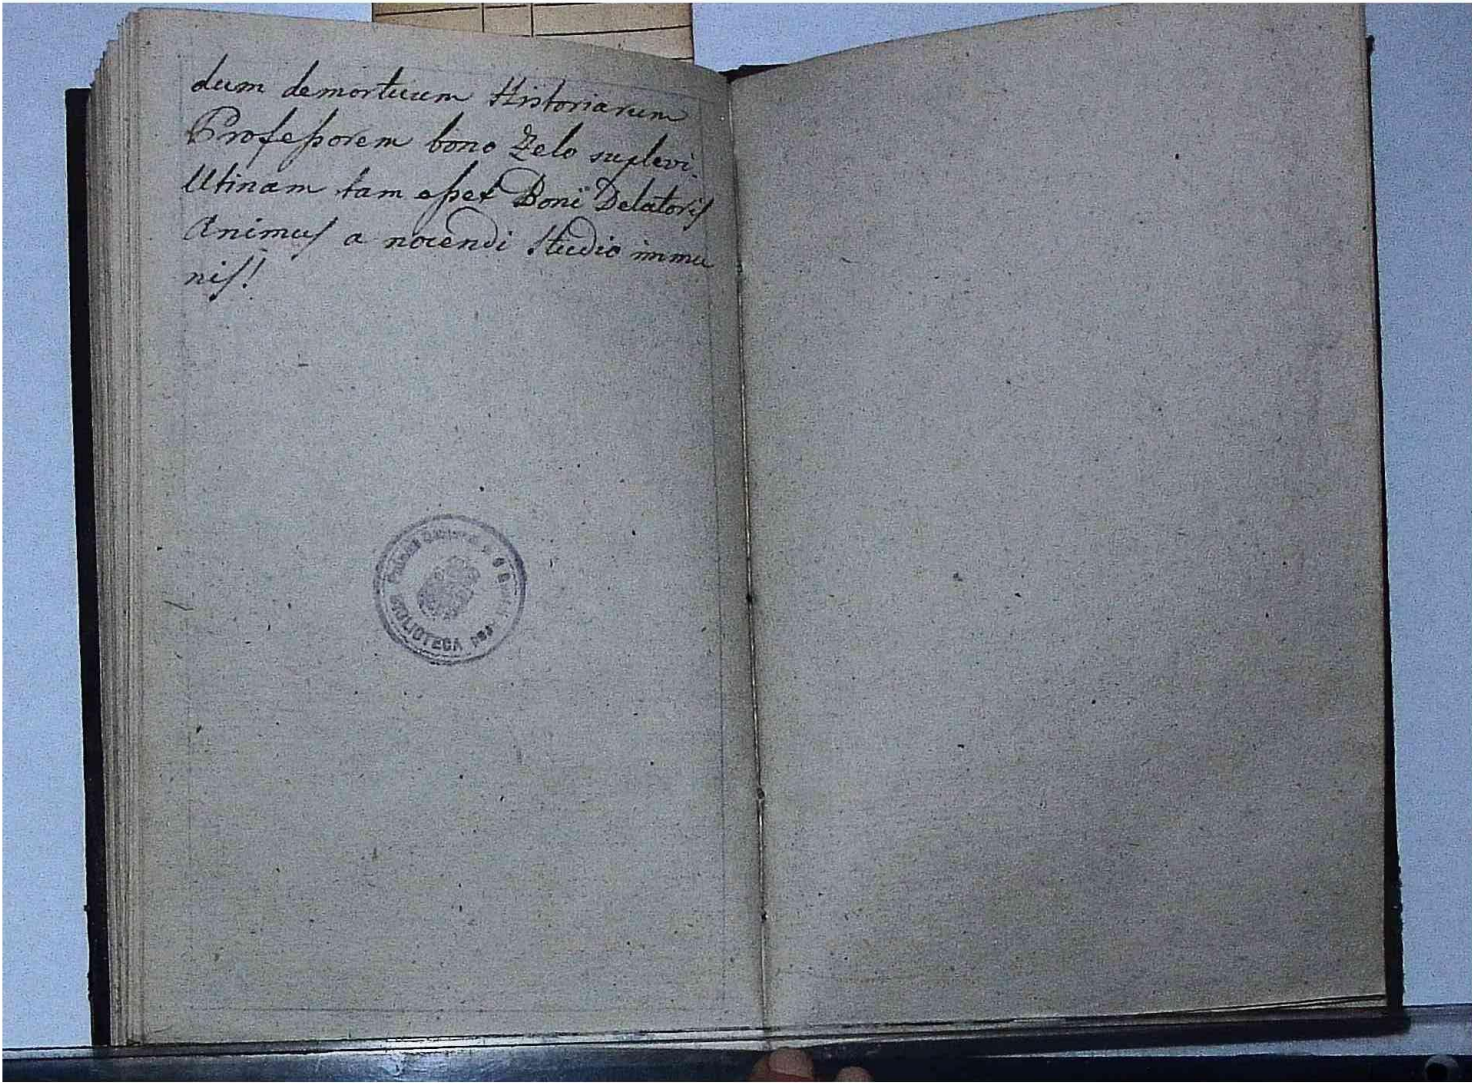 dum demortuum Historiarum
Profeſsorem bono Zelo suplevi.
Utinam tam eſset Boni Delatoris
Animus a nocendi Studio immu
nis!
BIBLIOTECA